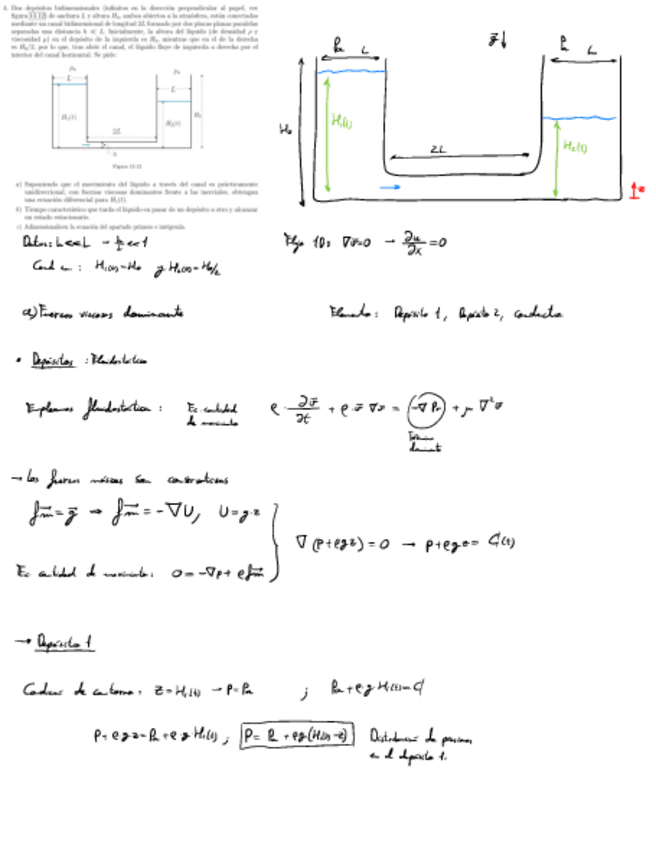 4. Dos depósitos bidimensionales (infinitos en la dirección perpendicular al papel, ver
figura 13.12) de anchura L y altura H₀, ambos abiertos a la atmósfera, están conectados
mediante un canal bidimensional de longitud 2L formado por dos placas planas paralelas
separadas una distancia h ≪ L. Inicialmente, la altura del líquido (de densidad ρ y
viscosidad μ) en el depósito de la izquierda es H₀, mientras que en el de la derecha
es H₀/2, por lo que, tras abrir el canal, el líquido fluye de izquierda a derecha por el
interior del canal horizontal. Se pide:
L
L
H₁(t)
H₂(t)
2L
h
Figura 13.12
a) Suponiendo que el movimiento del líquido a través del canal es prácticamente
unidireccional, con fuerzas viscosas dominantes frente a las inerciales, obtengan
una ecuación diferencial para H₁(t).
b) Tiempo característico que tarda el líquido en pasar de un depósito a otro y alcanzar
un estado estacionario.
c) Adimensionalicen la ecuación del apartado primero e intégrenla.
Pa
L
g↓
Pa
L
H₀
H₁(t)
2L
H₂(t)
z
Datos: h<<L → h/L <<1
Flujo 1D: ∇v=0 → ∂u/∂x =0
Cond in: H₁(0)=H₀ y H₂(0)=H₀/2
a) Fuerzas viscosas dominante
Elementos: Depósito 1, Depósito 2, conducto
• Depósitos: Fluidostática
Empleamos fluidostática: Ec. cantidad de movimiento ρ · ∂v/∂t + ρ·v ∇v = (-∇P) + μ ∇²v
Término
dominante
→ Las fuerzas másicas son conservativas
fm = g → fm = -∇U, U = g·z
∇(p+ρgz)=0 → p+ρgz= C(t)
Ec cantidad de movimiento: 0=-∇p+ρfm
→ Depósito 1
Condición de contorno: z=H₁(t) → P=Pa ; Pa+ρ·g H₁(t)=C
P+ρgz=Pa+ρ·g·H₁(t) ; P= Pa +ρg(H₁(t)-z) Distribución de presiones
en el depósito 1.